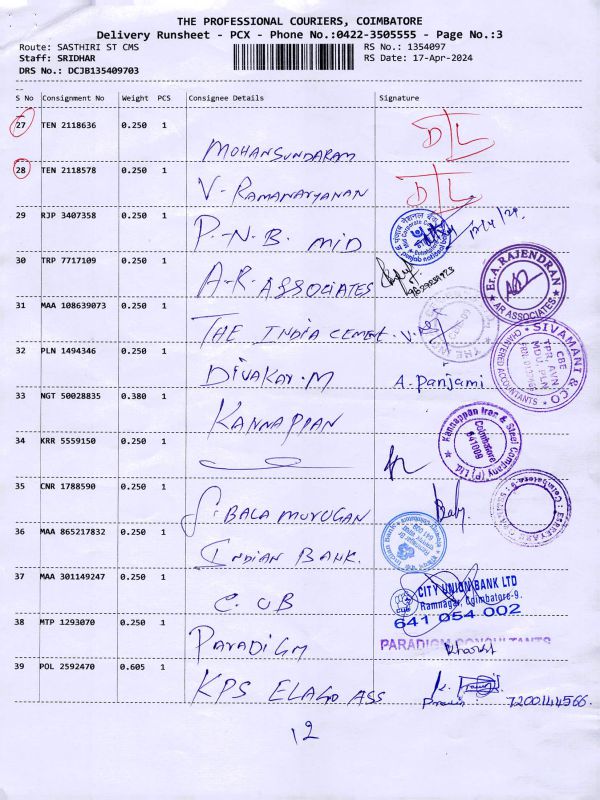 THE PROFESSIONAL COURIERS, COIMBATORE
Delivery Runsheet - PCX - Phone No.:0422-3505555 - Page No.:3
Route: SASTHIRI ST CMS
RS No.: 1354097
Staff: SRIDHAR
RS Date: 17-Apr-2024
DRS No.: DCJB135409703
S No Consignment No Weight PCS Consignee Details Signature
27 TEN 2118636 0.250 1
MOHANSUNDARAM D/L
28 TEN 2118578 0.250 1
V-RAMANARYANAN D/L
29 RJP 3407358 0.250 1
P.N.B. MID
30 TRP 7717109 0.250 1
A-R ASSOCIATES
Er.A. RAJENDRAN
AR ASSOCIATES
31 MAA 108639073 0.250 1
THE INDIA CEMENT
32 PLN 1494346 0.250 1
DIVAKAR.M A. Panjami
SIVAMANI & CO
CHARTERED ACCOUNTANTS
CBE
TPR, AVN
MDU, PLN
33 NGT 50028835 0.380 1
KANNAPPAN
Kannappan Iron & Steel Company (P) Ltd.
Coimbatore
641009
34 KRR 5559150 0.250 1
35 CNR 1788590 0.250 1
S. BALA MURUGAN Baby
36 MAA 865217832 0.250 1
INDIAN BANK.
37 MAA 301149247 0.250 1
C.U B
CITY UNION BANK LTD
Ramnagar, Coimbatore-9.
641 054 002
38 MTP 1293070 0.250 1
PARADIGM
PARADIGM CONSULTANTS
Bharat
39 POL 2592470 0.605 1
KPS ELAGO ASS
7200144566
12